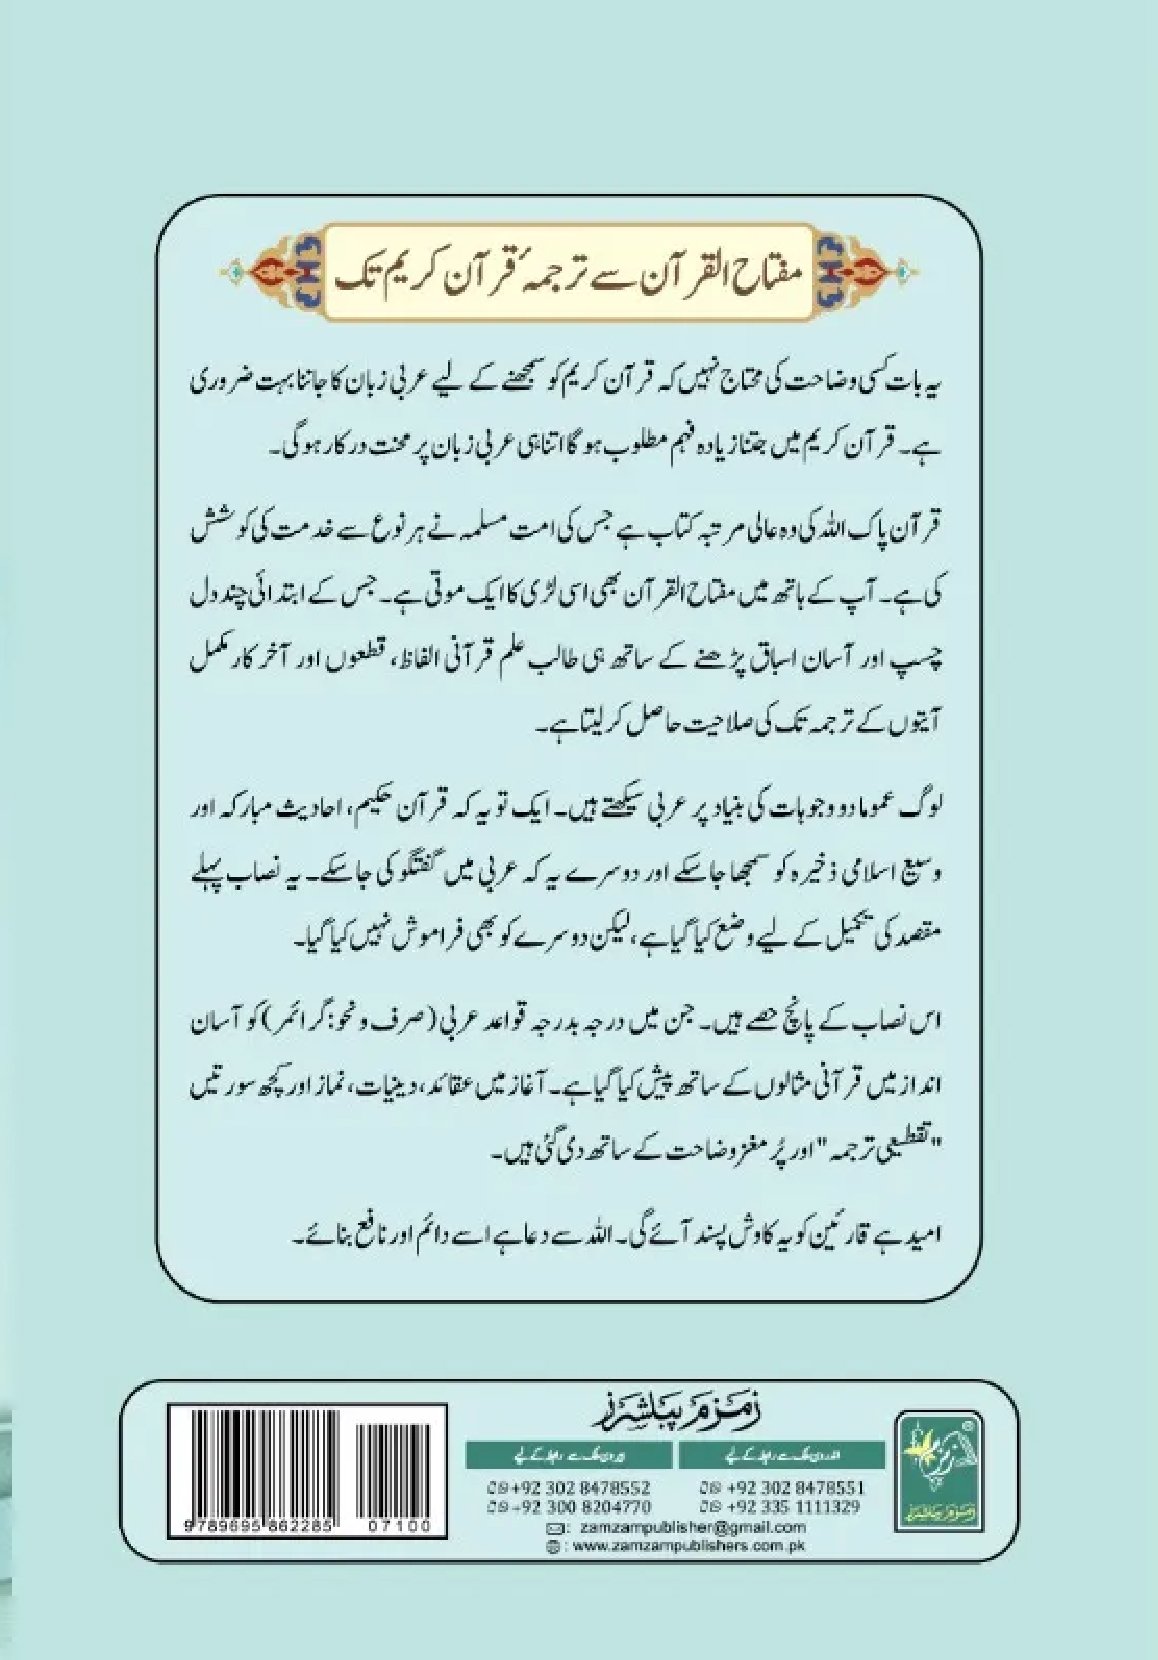 مفتاح القرآن سے ترجمۂ قرآن کریم تک
یہ بات کسی وضاحت کی محتاج نہیں کہ قرآن کریم کو سمجھنے کے لیے عربی زبان کا جاننا بہت ضروری
ہے۔ قرآن کریم میں جتنا زیادہ فہم مطلوب ہوگا اتنا ہی عربی زبان پر محنت درکار ہوگی۔
قرآن پاک اللہ کی وہ عالی مرتبہ کتاب ہے جس کی امت مسلمہ نے ہر نوع سے خدمت کی کوشش
کی ہے۔ آپ کے ہاتھ میں مفتاح القرآن بھی اسی لڑی کا ایک موتی ہے۔ جس کے ابتدائی چند دل
چسپ اور آسان اسباق پڑھنے کے ساتھ ہی طالب علم قرآنی الفاظ، قطعوں اور آخر کار مکمل
آیتوں کے ترجمہ تک کی صلاحیت حاصل کرلیتا ہے۔
لوگ عموما دو وجوہات کی بنیاد پر عربی سیکھتے ہیں۔ ایک تو یہ کہ قرآن حکیم، احادیث مبارکہ اور
وسیع اسلامی ذخیرہ کو سمجھا جاسکے اور دوسرے یہ کہ عربی میں گفتگو کی جاسکے۔ یہ نصاب پہلے
مقصد کی تکمیل کے لیے وضع کیا گیا ہے، لیکن دوسرے کو بھی فراموش نہیں کیا گیا۔
اس نصاب کے پانچ حصے ہیں۔ جن میں درجہ بدرجہ قواعد عربی (صرف و نحو: گرائمر) کو آسان
انداز میں قرآنی مثالوں کے ساتھ پیش کیا گیا ہے۔ آغاز میں عقائد، دینیات، نماز اور کچھ سورتیں
"تقطیعی ترجمہ" اور پُر مغز وضاحت کے ساتھ دی گئی ہیں۔
امید ہے قارئین کو یہ کاوش پسند آئے گی۔ اللہ سے دعا ہے اسے دائم اور نافع بنائے۔
زمزم پبلشرز
اندرون ملک سے رابطہ کے لیے بیرون ملک سے رابطہ کے لیے
+92 302 8478552 +92 302 8478551
+92 300 8204770 +92 335 1111329
: zamzampublisher@gmail.com
: www.zamzampublishers.com.pk
9 789695 862285 07100
زمزم
زمزم پبلشرز